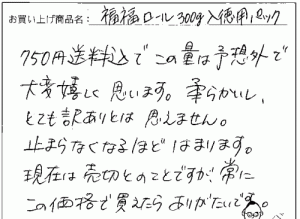 お買い上げ商品名： 福福ロール300g入徳用パック
750円送料込でこの量は予想外で
大変嬉しく思います。柔らかいし、
とても訳ありとは思えません。
止まらなくなるほどはまります。
現在は売切とのことですが、常に
この価格で買えたらありがたいです。